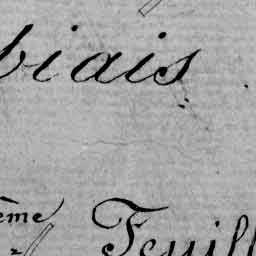 biais
ème Feuill